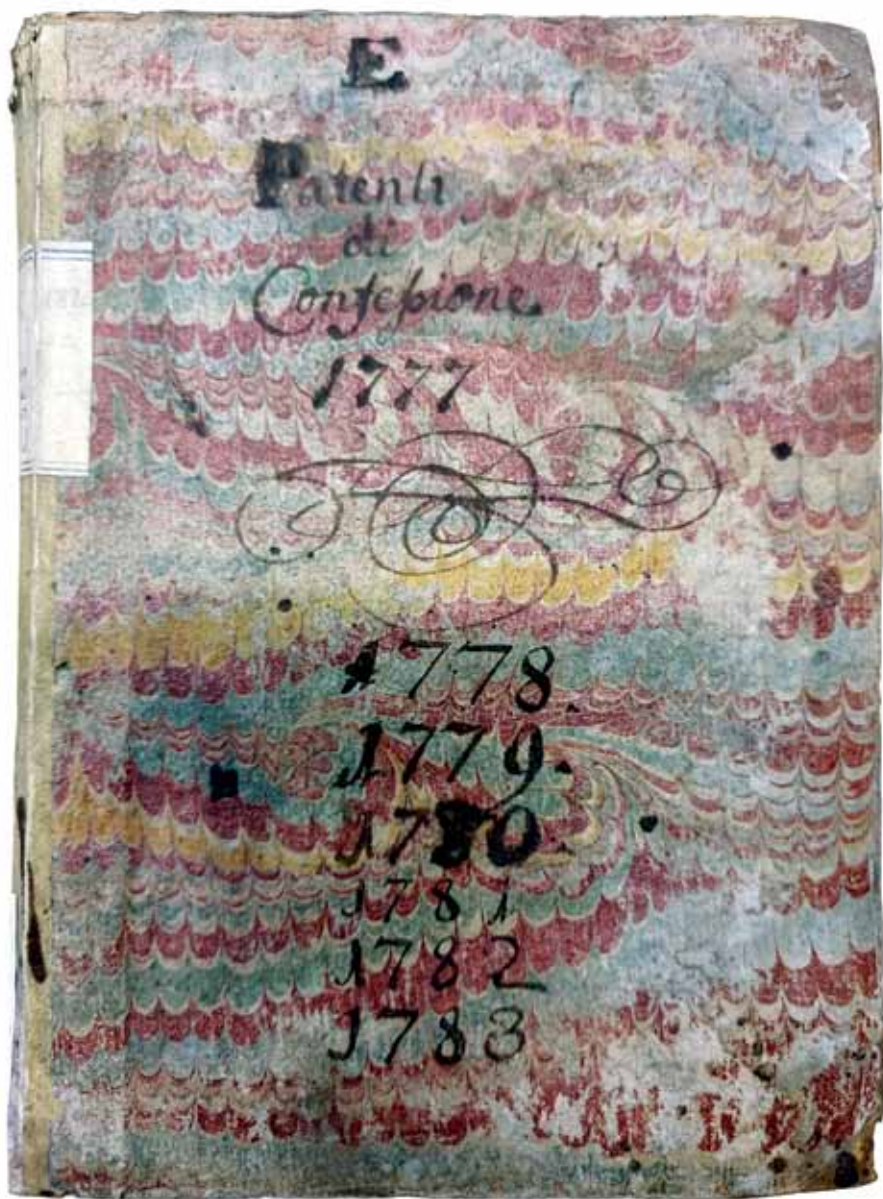 E
Patenti
di
Confessione
1777
1778.
1779.
1780.
1781
1782
1783